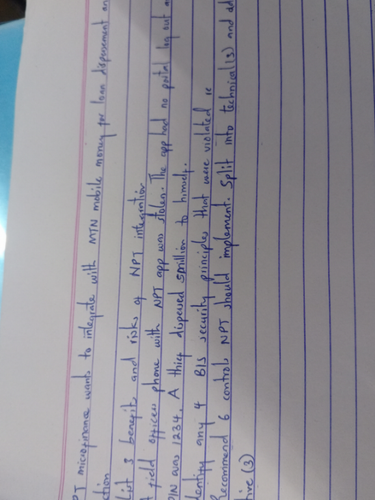 PT microfinance wants to integrate with MTN mobile money for loan dispursement an
ction
list 3 benefits and risks of NPT integration
A field officers phone with NPT app was stolen. The app had no portal log out an
PIN was 1234. A thief dispersed 5million to himself.
dentify any 4 BIS security principles that were violated
Recommend 6 control NPT should implement. Split into technical(3) and ad
tive (3)